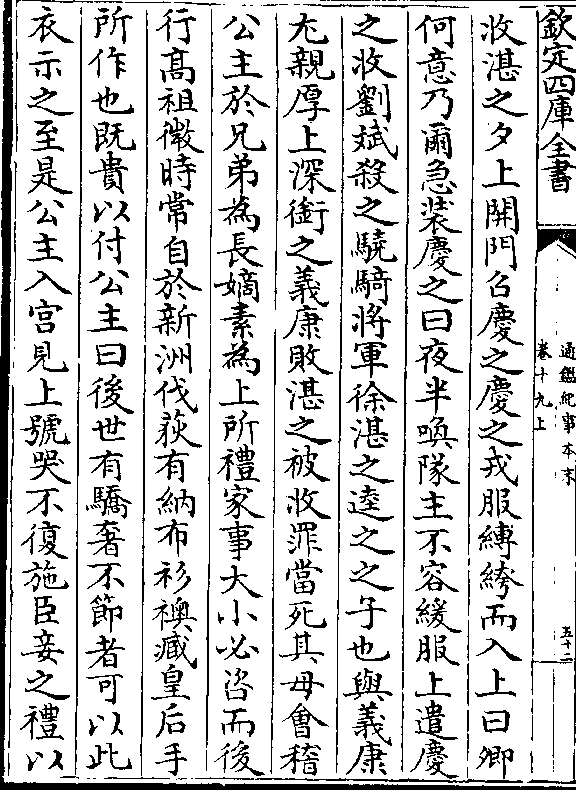 欽定四庫全書
通鑑紀事本末
卷十九上
五十二
收湛之夕上開門召慶之慶之戎服縛絝而入上曰卿
何意乃爾急裝慶之曰夜半喚隊主不容緩服上遣慶
之收劉斌殺之驍騎將軍徐湛之逵之之子也與義康
尤親厚上深銜之義康敗湛之被收罪當死其母會稽
公主於兄弟為長嫡素為上所禮家事大小必咨而後
行高祖微時常自於新洲伐荻有納布衫襖臧皇后手
所作也既貴以付公主曰後世有驕奢不節者可以此
衣示之至是公主入宫見上號哭不復施臣妾之禮以